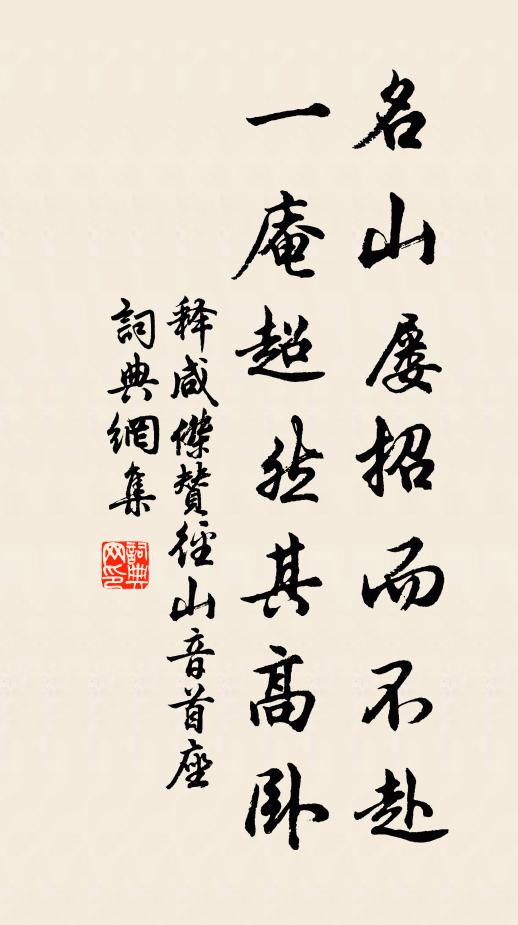 名山屡招而不赴
一庵超然其高卧
释咸傑赞徑山音首座
詞典網集
詞典网印